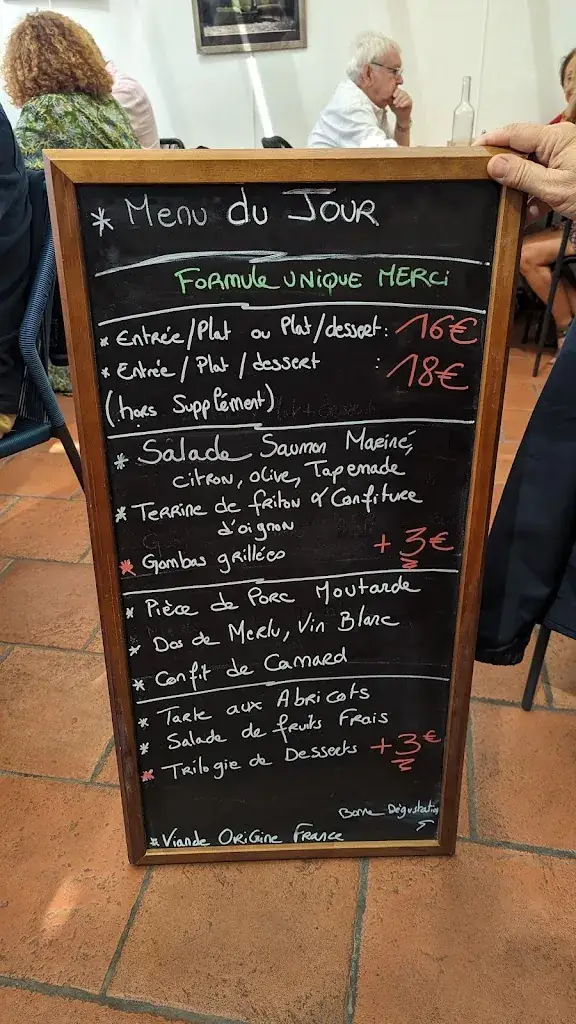 * Menu du JOUR
FORMULE UNIQUE MERCI
* Entrée/Plat ou Plat/dessert: 16€
* Entrée / Plat / dessert : 18€
(hors Supplément)
* Salade Saumon Mariné,
citron, olive, Tapenade
* Terrine de friton & Confiture
d'oignon
* Gambas grillées + 3€
* Pièce de Porc Moutarde
* Dos de Merlu, Vin Blanc
* Confit de Canard
* Tarte aux Abricots
* Salade de fruits Frais
* Trilogie de Desserts + 3€
Bonne Dégustation
* Viande Origine France